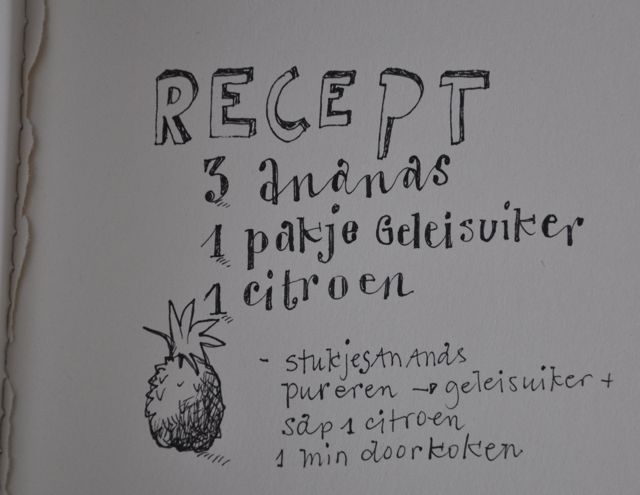 RECEPT
3 ananas
1 pakje Geleisuiker
1 citroen
- stukjes AnAnds
pureren → geleisuiker +
sap 1 citroen
1 min doorkoken